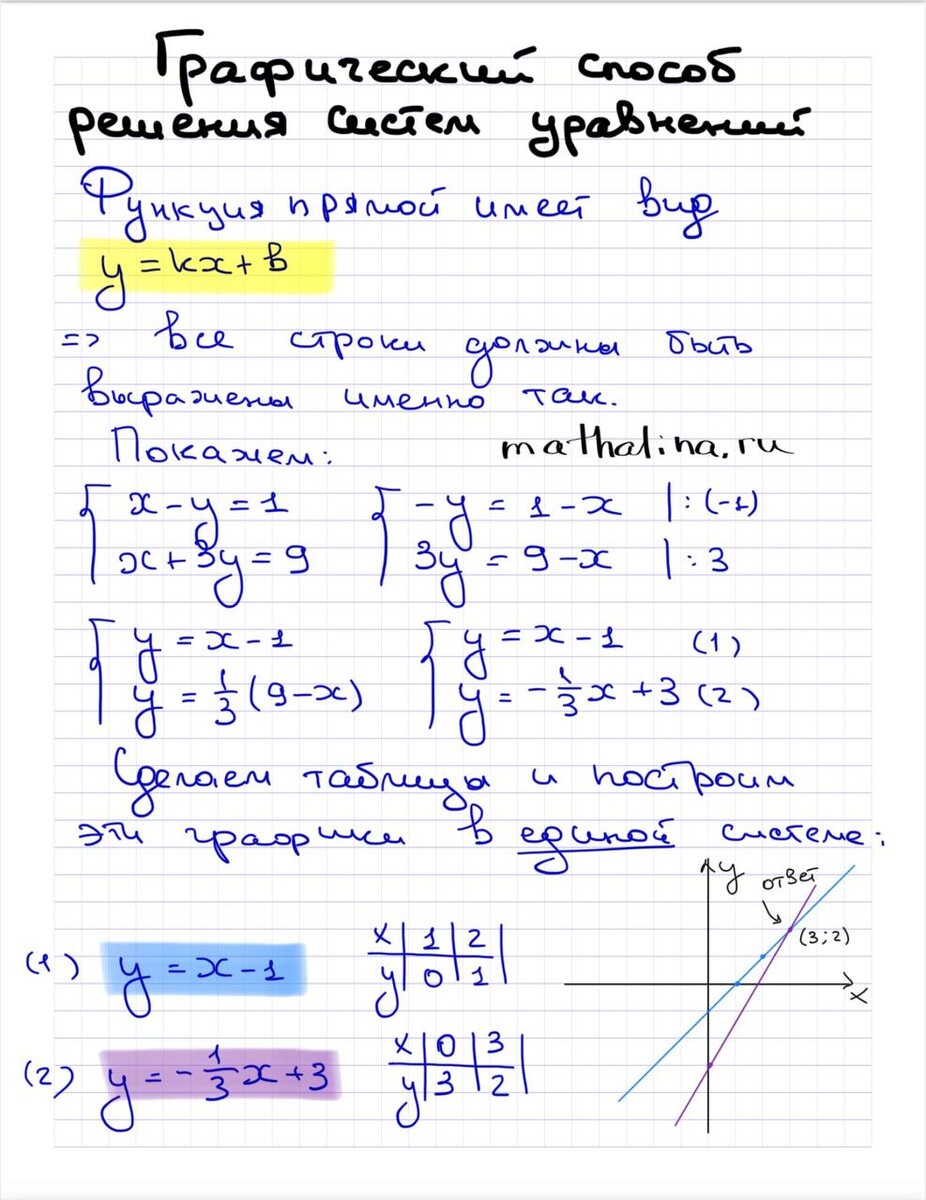 Графический способ
решения систем уравнений
Функция прямой имеет вид
y = kx + b
=> все строки должны быть
выражены именно так.
Покажем: mathalina.ru
{ x - y = 1 { -y = 1 - x | : (-1)
{ x + 3y = 9 { 3y = 9 - x | : 3
{ y = x - 1 { y = x - 1 (1)
{ y = 1/3 (9 - x) { y = - 1/3 x + 3 (2)
Сделаем таблицы и построим
эти графики в единой системе:
y ответ
(3;2)
x
(1) y = x - 1 x | 1 | 2 |
y | 0 | 1 |
(2) y = - 1/3 x + 3 x | 0 | 3 |
y | 3 | 2 |